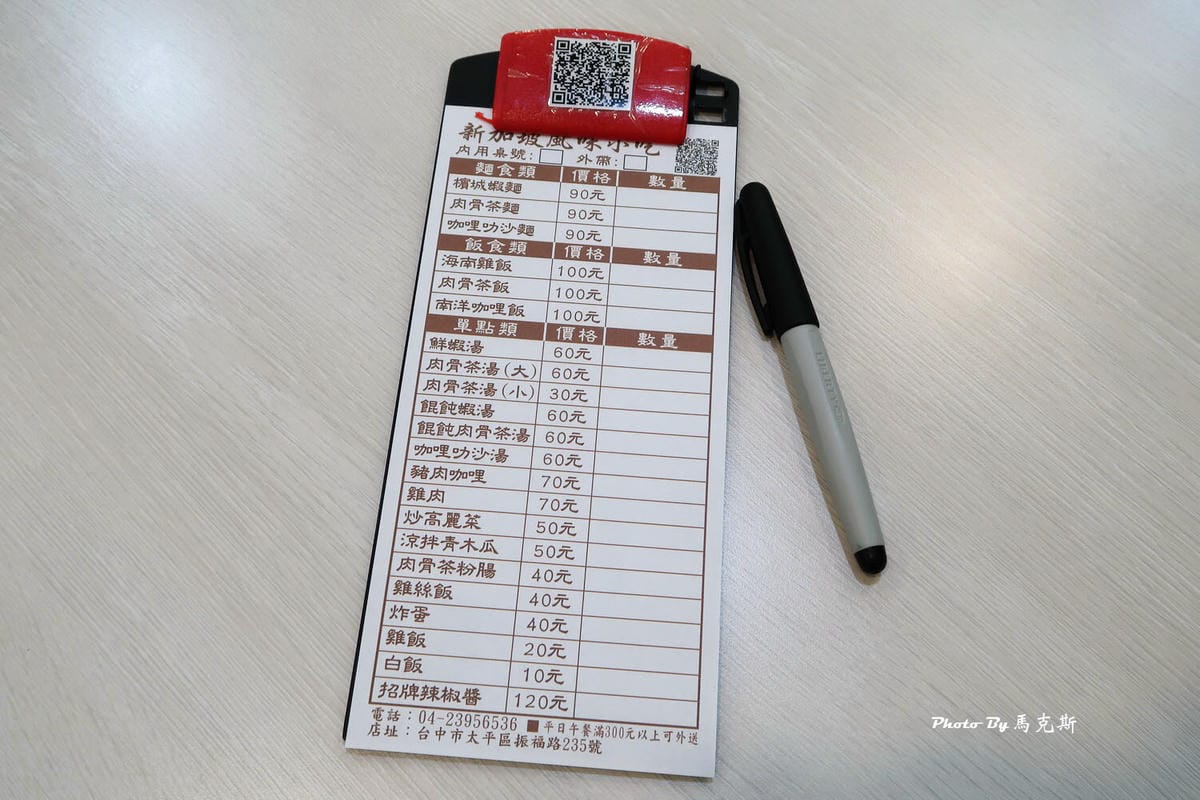 新加坡風味小吃
內用桌號： 外帶：
麵食類 價格 數量
檳城蝦麵 90元
肉骨茶麵 90元
咖哩叻沙麵 90元
飯食類 價格 數量
海南雞飯 100元
肉骨茶飯 100元
南洋咖哩飯 100元
單點類 價格 數量
鮮蝦湯 60元
肉骨茶湯(大) 60元
肉骨茶湯(小) 30元
餛飩蝦湯 60元
餛飩肉骨茶湯 60元
咖哩叻沙湯 60元
豬肉咖哩 70元
雞肉 70元
炒高麗菜 50元
涼拌青木瓜 50元
肉骨茶粉腸 40元
雞絲飯 40元
炸蛋 40元
雞飯 20元
白飯 10元
招牌辣椒醬 120元
電話：04-23956536 ■平日午餐滿300元以上可外送
店址：台中市太平區振福路235號
Photo By 馬克斯